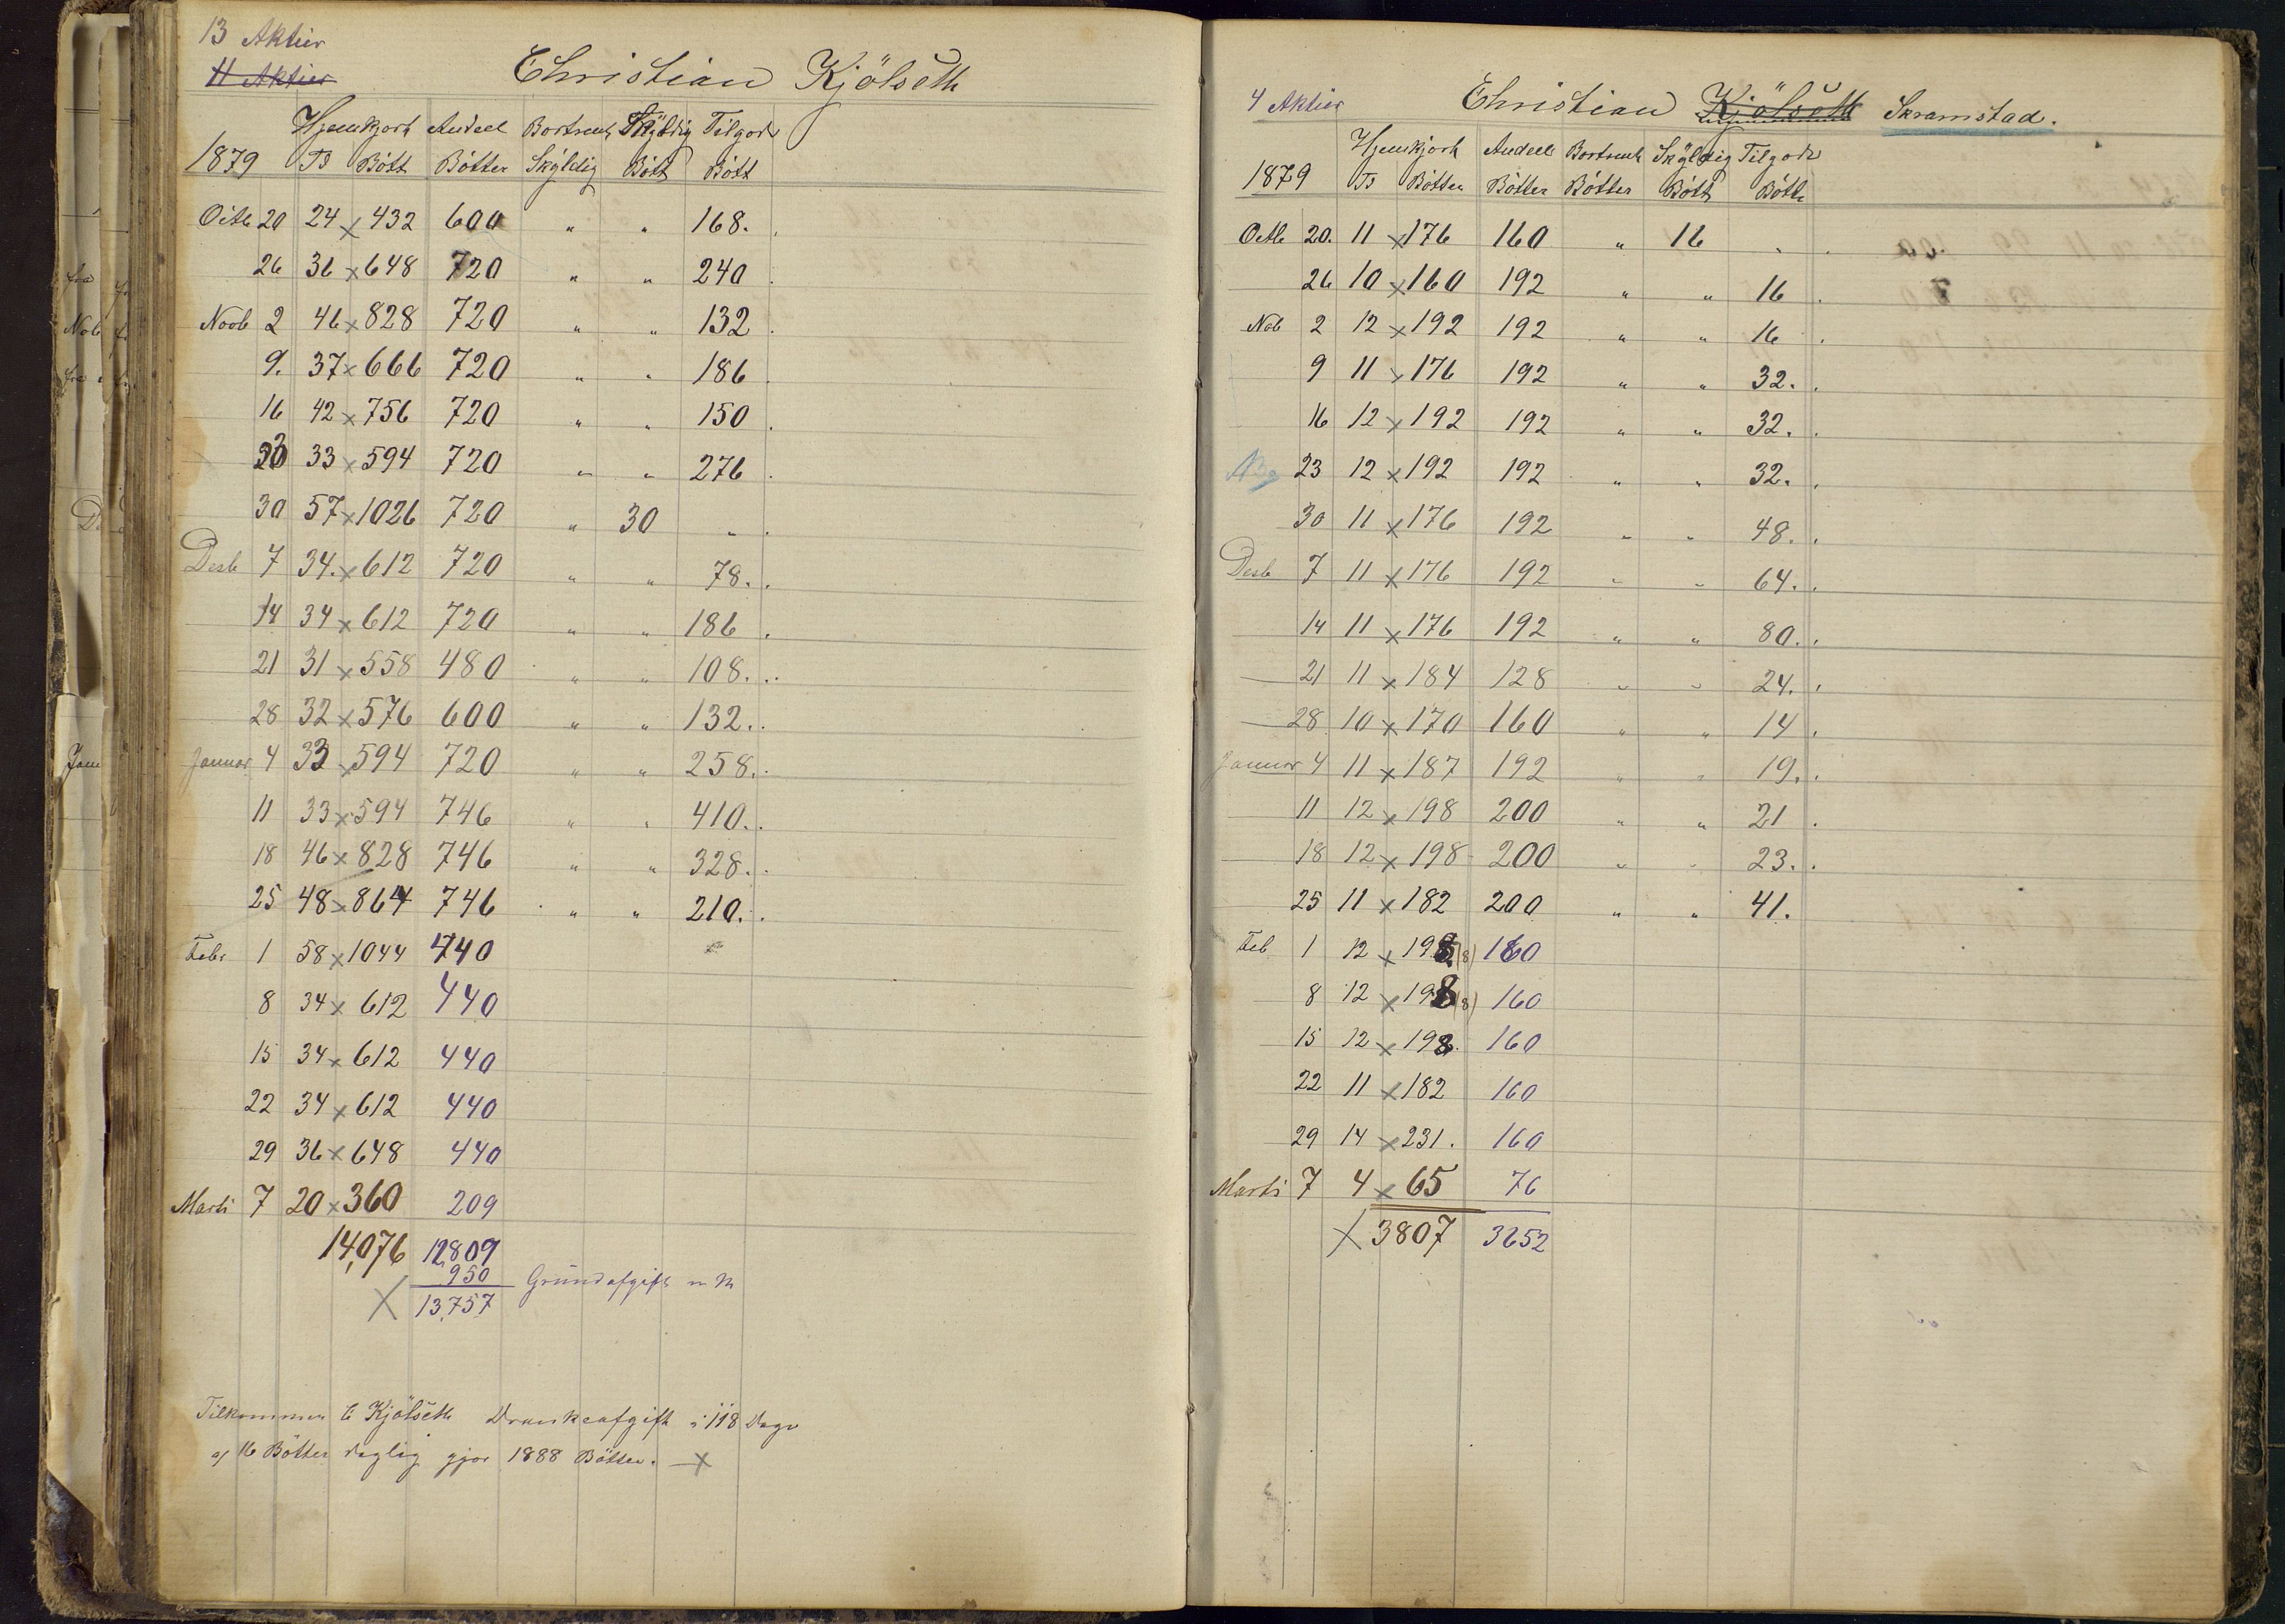 13 Aktier
11 Aktier
Christian Kjölseth
Hjemkjort Andeel Bortrent Skÿldig Tilgode
1879 Ts Bött Bötter Skÿldig Bött Bött
Octb 20 24 x 432 600 " " 168.
26 36 x 648 720 " " 240
Novb 2 46 x 828 720 " " 132
9. 37 x 666 720 " " 186
16 42 x 756 720 " " 150
23 33 x 594 720 " " 276
30 57 x 1026 720 " 30 "
Desb 7 34. x 612 720 " " 78.
14 34 x 612 720 " " 186
21 31 x 558 480 " " 108.
28 32 x 576 600 " " 132.
Januar 4 33 x 594 720 " " 258.
11 33 x 594 746 " " 410.
18 46 x 828 746 " " 328.
25 48 x 864 746 " " 210.
Febr 1 58 x 1044 740
8 34 x 612 440
15 34 x 612 440
22 34 x 612 440
29 36 x 648 440
Marts 7 20 x 360 209
14,076 12,809
950 Grundafgift
x 13,757
Tilkommen C Kjölseth Drankeafgift i 118 Dage
af 16 Bötter daglig gjör 1888 Bötter. x
4 Aktier
Christian Kjölseth Skramstad.
Hjemkjort Andeel Bortrent Skÿldig Tilgode
1879 Ts Bötter Bötter Bötter Bött Bött
Octb 20. 11 x 176 160 " 16 "
26 10 x 160 192 " " 16
Nob 2 12 x 192 192 " " 16
9 11 x 176 192 " " 32.
16 12 x 192 192 " " 32.
23 12 x 192 192 " " 32.
30 11 x 176 192 " " 48.
Desb 7 11 x 176 192 " " 64.
14 11 x 176 192 " " 80.
21 11 x 184 128 " " 24.
28 10 x 170 160 " " 14
Januar 4 11 x 187 192 " " 19.
11 12 x 198 200 " " 21
18 12 x 198 200 " " 23.
25 11 x 182 200 " " 41.
Feb 1 12 x 198 (8) 160
8 12 x 198 (8) 160
15 12 x 198. 160
22 11 x 182 160
29 14 x 231. 160
Marts 7 4 x 65 76
x 3807 3652